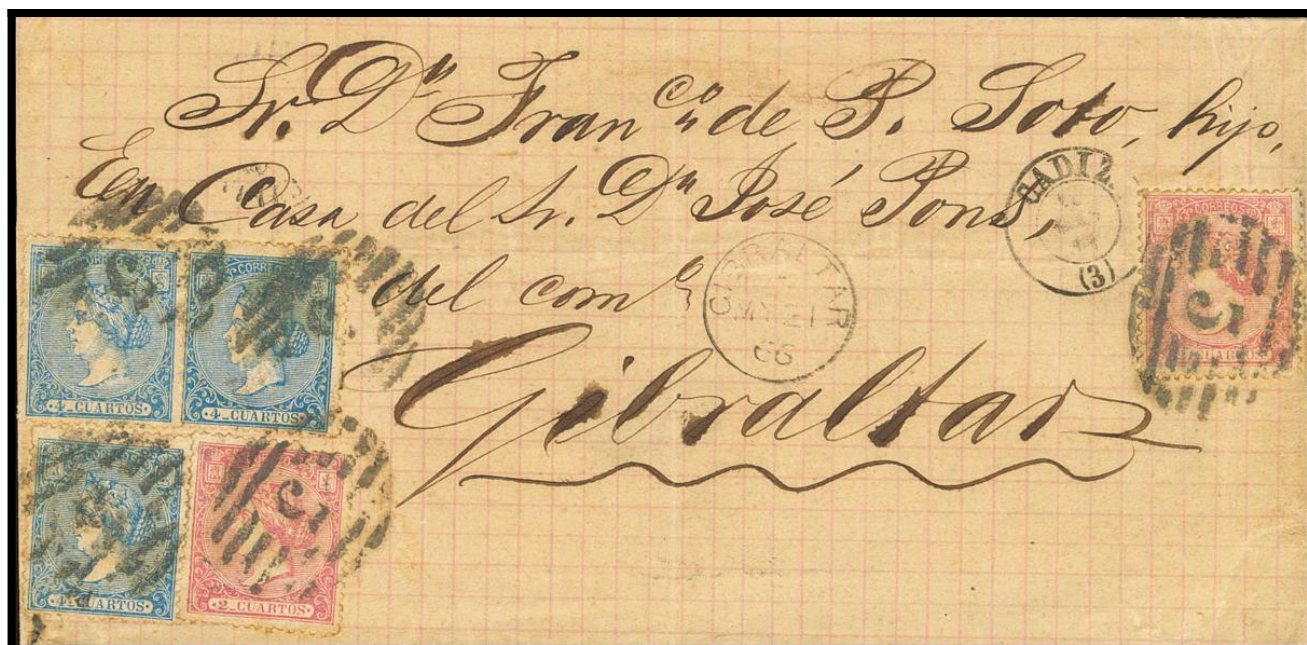 Sr. Dn Franco de P. Soto, hijo,
En Casa del Sr. Dn José Pons,
del come
Gibraltar
CADIZ
(3)
GIBRALTAR
MY 21
66
CORREOS
2 CUARTOS
5
CORREOS
4 CUARTOS
CORREOS
4 CUARTOS
4 CUARTOS
2 CUARTOS